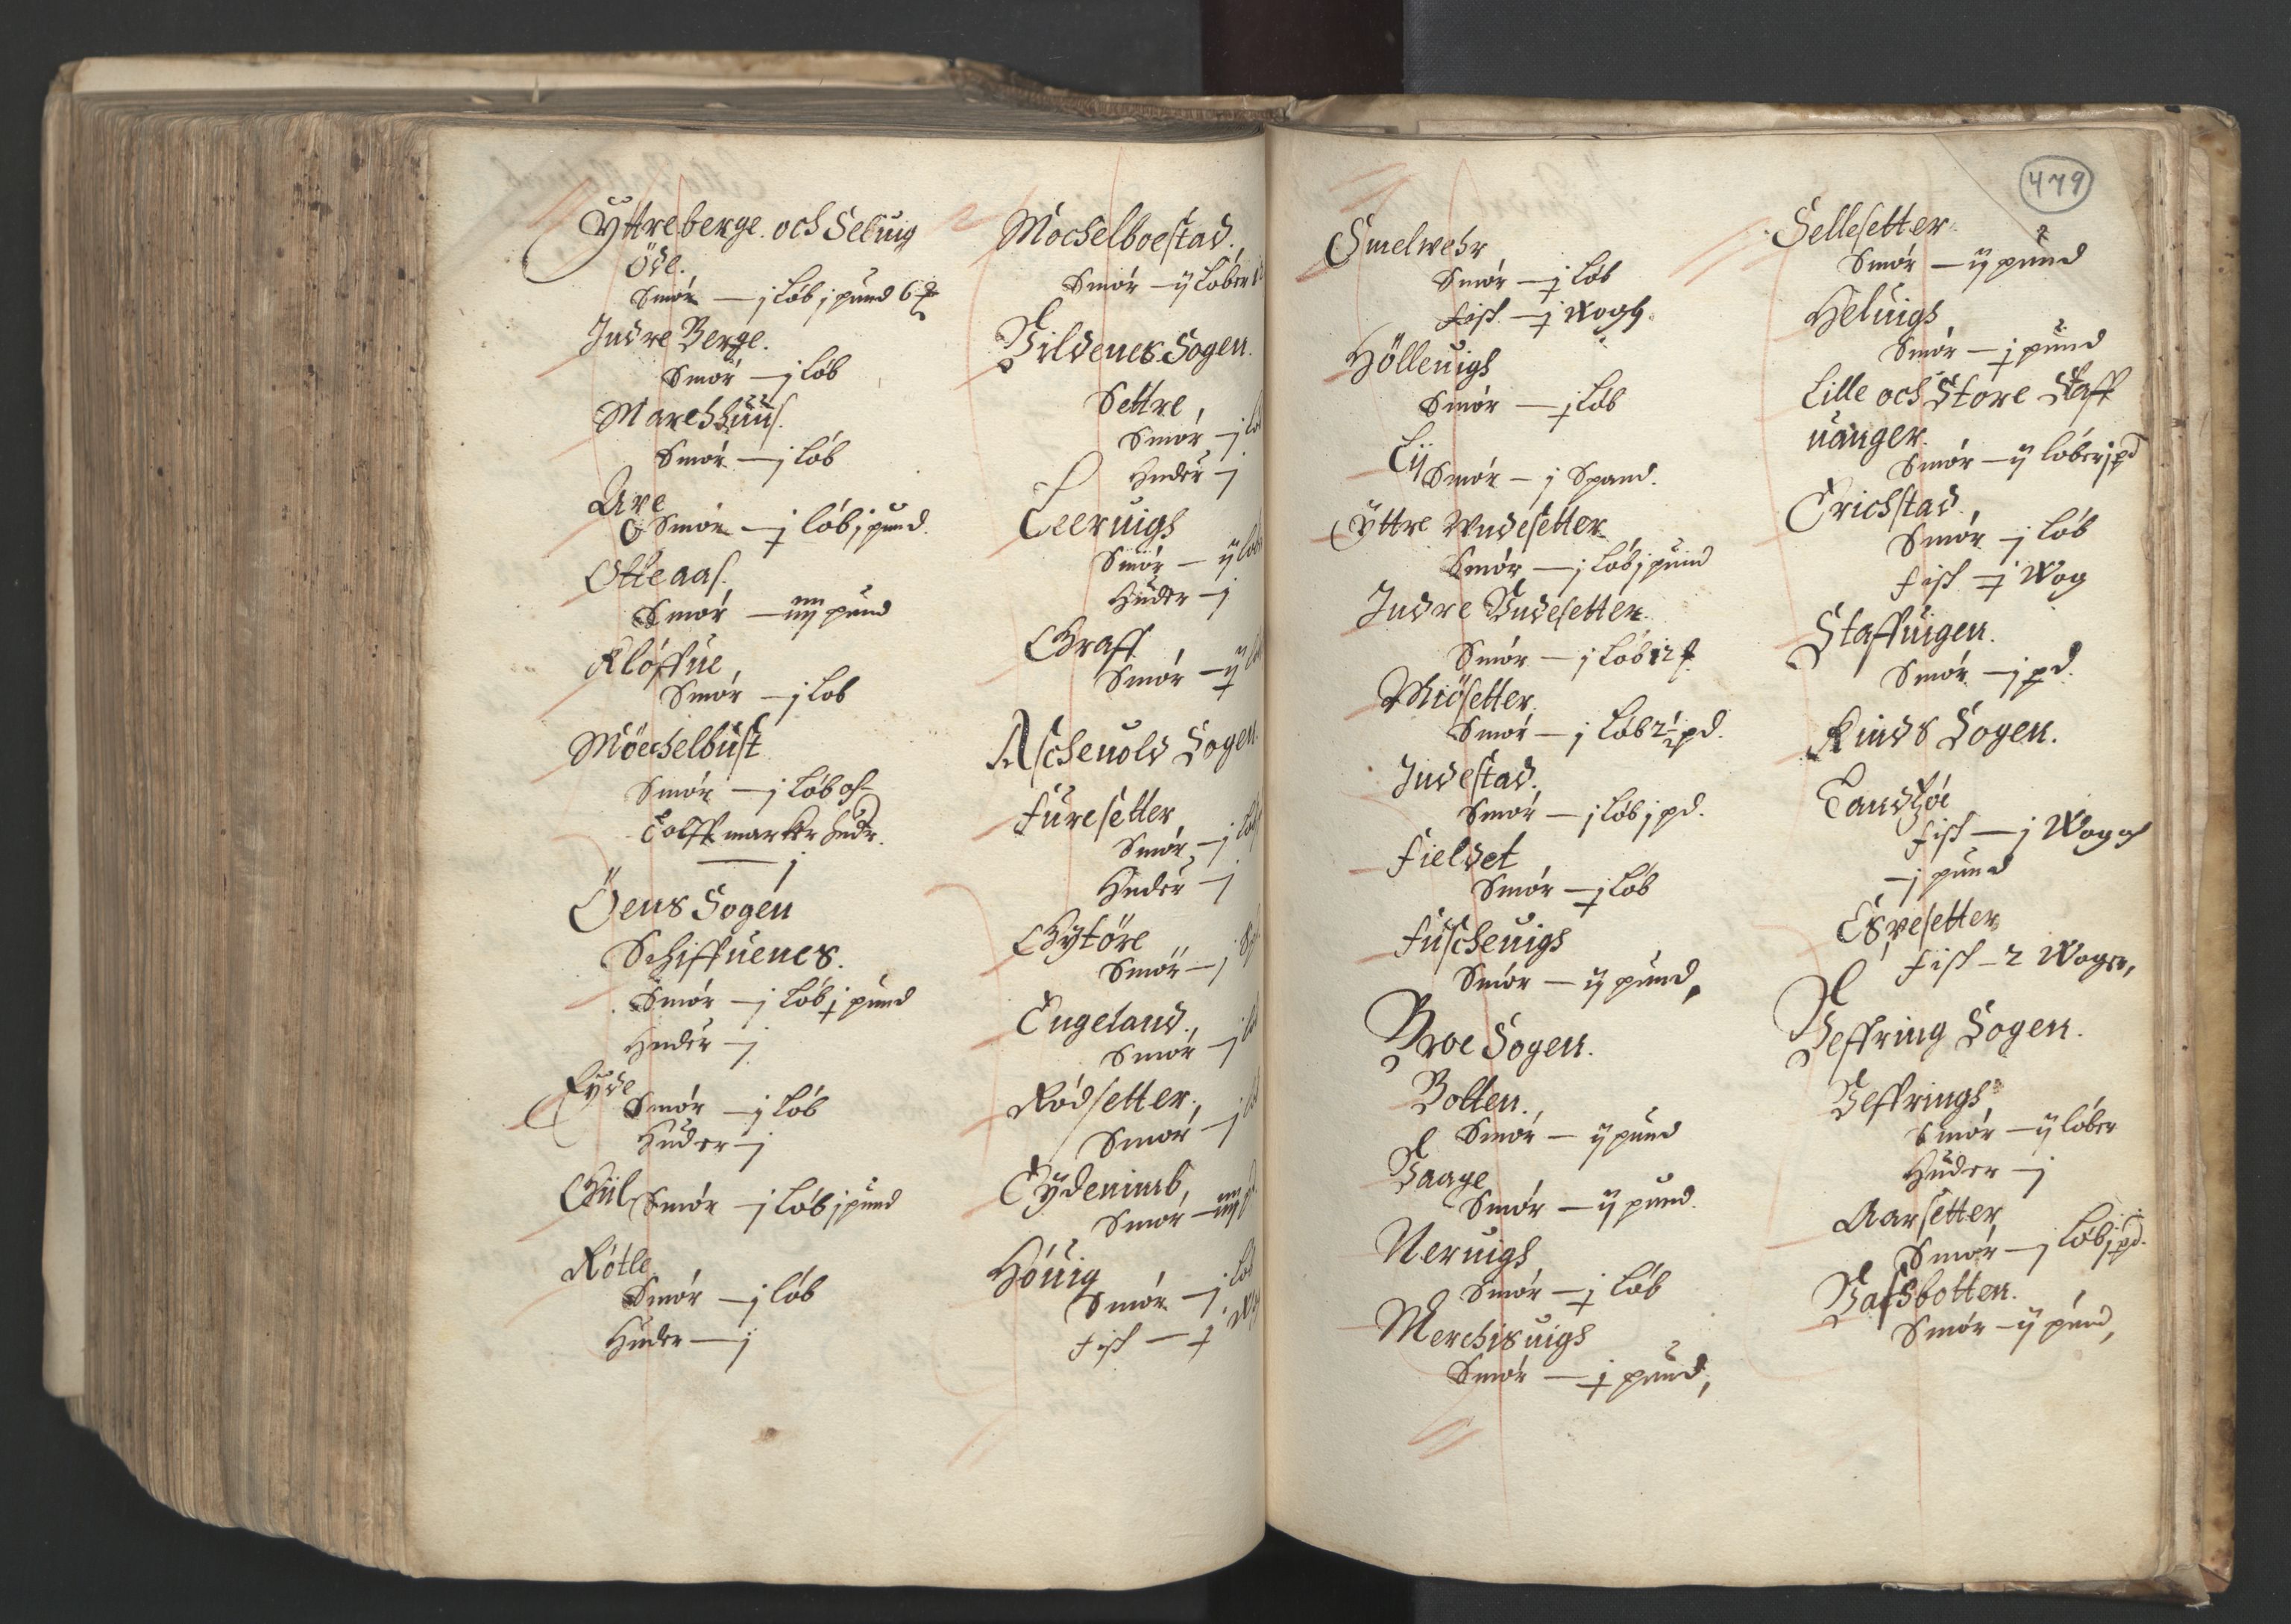 Yttreberge och Seluig
öde.
Smör — j løb j pund 6
Indre Berge.
Smör — j løb
Marchhuus.
Smör — j løb
Are
Smör — j løb j pund.
Otteaas.
Smör — iiij pund
Kløffue
Smör — j løb
Möechelbust
Smör — j løb och
Tolff marker
— j
Öens Sogen
Schiffuenes.
Smör — j løb j pund
Huder — j
Eyde
Smör — j løb
Huder — j
Giil Smör — j løb j pund
Røtle
Smör — j løb
Huder — j
Mochelboestad.
Smör — ij løber
Vildenes Sogen.
Settre,
Smör — j
Huder — j
Leeruigh
Smör — ij
Huder — j
Graff
Smör — ij
Ascheuold Sogen.
Furesetter
Smör — j
Huder — j
Gytöre
Smör — j
Engeland.
Smör — j
Rødsetter.
Smör — j
Tydenimb,
Smör — iiij
Høuig
Smör — j løb
Fisk — j
479
Smelwehr
Smör — j løb
Fisk — j Wogh.
Hölleuigh
Smör — j løb
Lij
Smör — j Spand.
Yttre Wndesetter
Smör — j løb j pund
Indre Vndesetter.
Smör — j løb 12
Miösetter
Smör — j løb 2½ pd.
Indestad.
Smör — j løb j pd.
Fieldet
Smör — j løb
Fuscheuigh
Smör — ij pund,
Broe Sogen.
Botten.
Smör — ij pund
Vaage
Smör — ij pund.
Neruigh
Smör — j løb
Merchisuigh
Smör — j pund,
Sellesetter.
Smör — ij pund
Heluigh
Smör — j pund
Lille och Store Staff
uanger.
Smör — ij løber j pd
Erichstad.
Smör — j løb
Fisk — j Wog
Staffuigen.
Smör — j pd.
Kinds Sogen.
Tandøe
Fisk — j Wog och
— j pund
Espesetter
Fisk — 2 Woger,
Veffring Sogen.
Veffringh
Smör — ij løber
Huder — j
Aarsetter
Smör — j løb j pd.
Vassbotten.
Smör — ij pund,